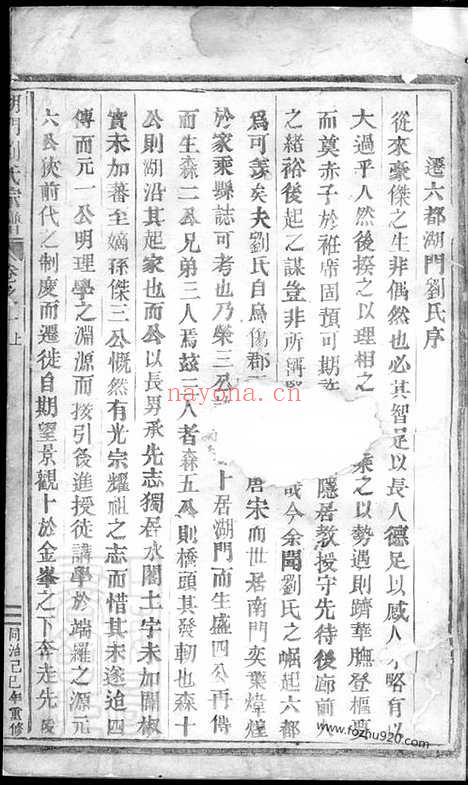 遷六都湖門劉氏序
從來豪傑之生非偶然也必其智足以長人德足以感人才略有以
大過乎人然後揆之以理相之 乘之以勢遇則躋華膴登樞要
而奠赤子於袵席固預可期 隱居教授守先待後廓前
之緒裕後起之謀豈非所謂 哉今余閱劉氏之崛起六都
為可羡矣夫劉氏自烏傷郡 唐宋而世居南門奕葉煒煌
於家乘縣誌可考也乃榮三公 卜居湖門而生盛四公再傳
而生森二公兄弟三人焉茲三人者森五公則橋頭其發軔也森十
公則湖沿其起家也而公以長男承先志獨居水閣土宇未加闢椒
實未加蕃至嫡孫傑三公慨然有光宗耀祖之志而惜其未遂迨四
傳而元一公明理學之淵源而接引後進授徒講學於端羅之源元
六公俠前代之制度而遷徙自期望景觀卜於金峯之下奔走先後
湖門劉氏宗譜
卷之一上
同治己巳年重修
nayona.cn
www.fozhu920.com